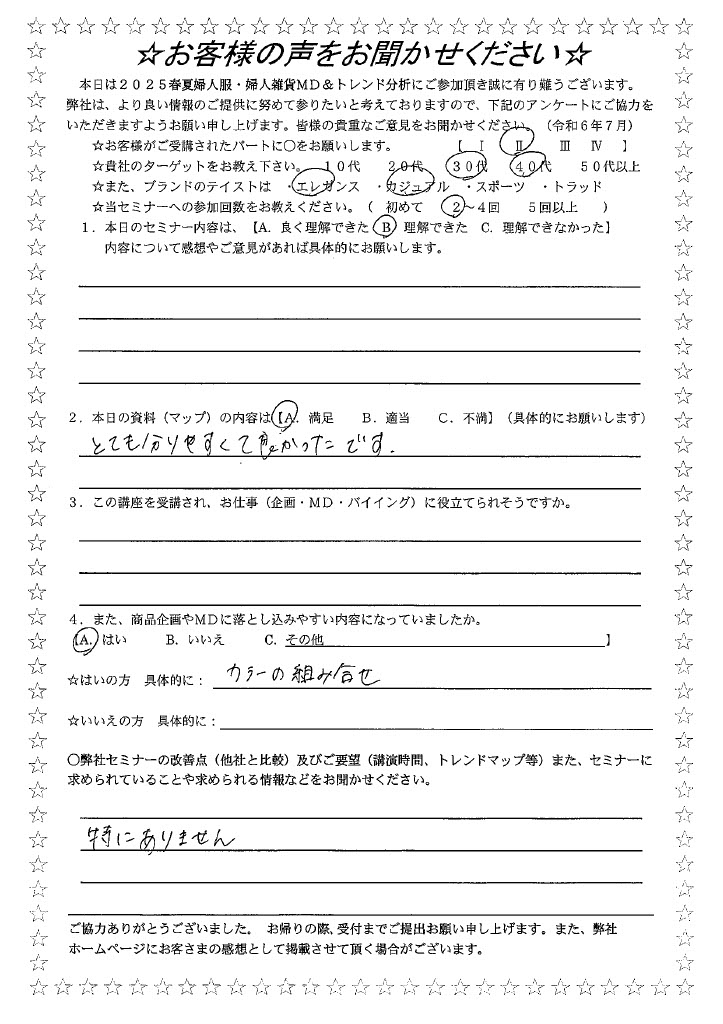 ☆お客様の声をお聞かせください☆
本日は２０２５春夏婦人服・婦人雑貨ＭＤ＆トレンド分析にご参加頂き誠に有り難うございます。
弊社は、より良い情報のご提供に努めて参りたいと考えておりますので、下記のアンケートにご協力を
いただきますようお願い申し上げます。皆様の貴重なご意見をお聞かせください。（令和６年７月）
☆お客様がご受講されたパートに○をお願いします。　【　Ⅰ　Ⅱ　Ⅲ　Ⅳ　】
☆貴社のターゲットをお教え下さい。　１０代　２０代　３０代　４０代　５０代以上
☆また、ブランドのテイストは　・エレガンス　・カジュアル　・スポーツ　・トラッド
☆当セミナーへの参加回数をお教えください。（　初めて　２～４回　５回以上　）
１．本日のセミナー内容は、【A. 良く理解できた　B 理解できた　C. 理解できなかった】
内容について感想やご意見があれば具体的にお願いします。
２．本日の資料（マップ）の内容は【A. 満足　B. 適当　C. 不満】（具体的にお願いします）
とても分りやすくて良かったです.
３．この講座を受講され、お仕事（企画・ＭＤ・バイイング）に役立てられそうですか。
４．また、商品企画やＭＤに落とし込みやすい内容になっていましたか。
【A. はい　B. いいえ　C. その他　】
☆はいの方　具体的に：　カラーの組み合せ
☆いいえの方　具体的に：
○弊社セミナーの改善点（他社と比較）及びご要望（講演時間、トレンドマップ等）また、セミナーに
求められていることや求められる情報などをお聞かせください。
特にありません
ご協力ありがとうございました。　お帰りの際、受付までご提出お願い申し上げます。また、弊社
ホームページにお客さまの感想として掲載させて頂く場合がございます。